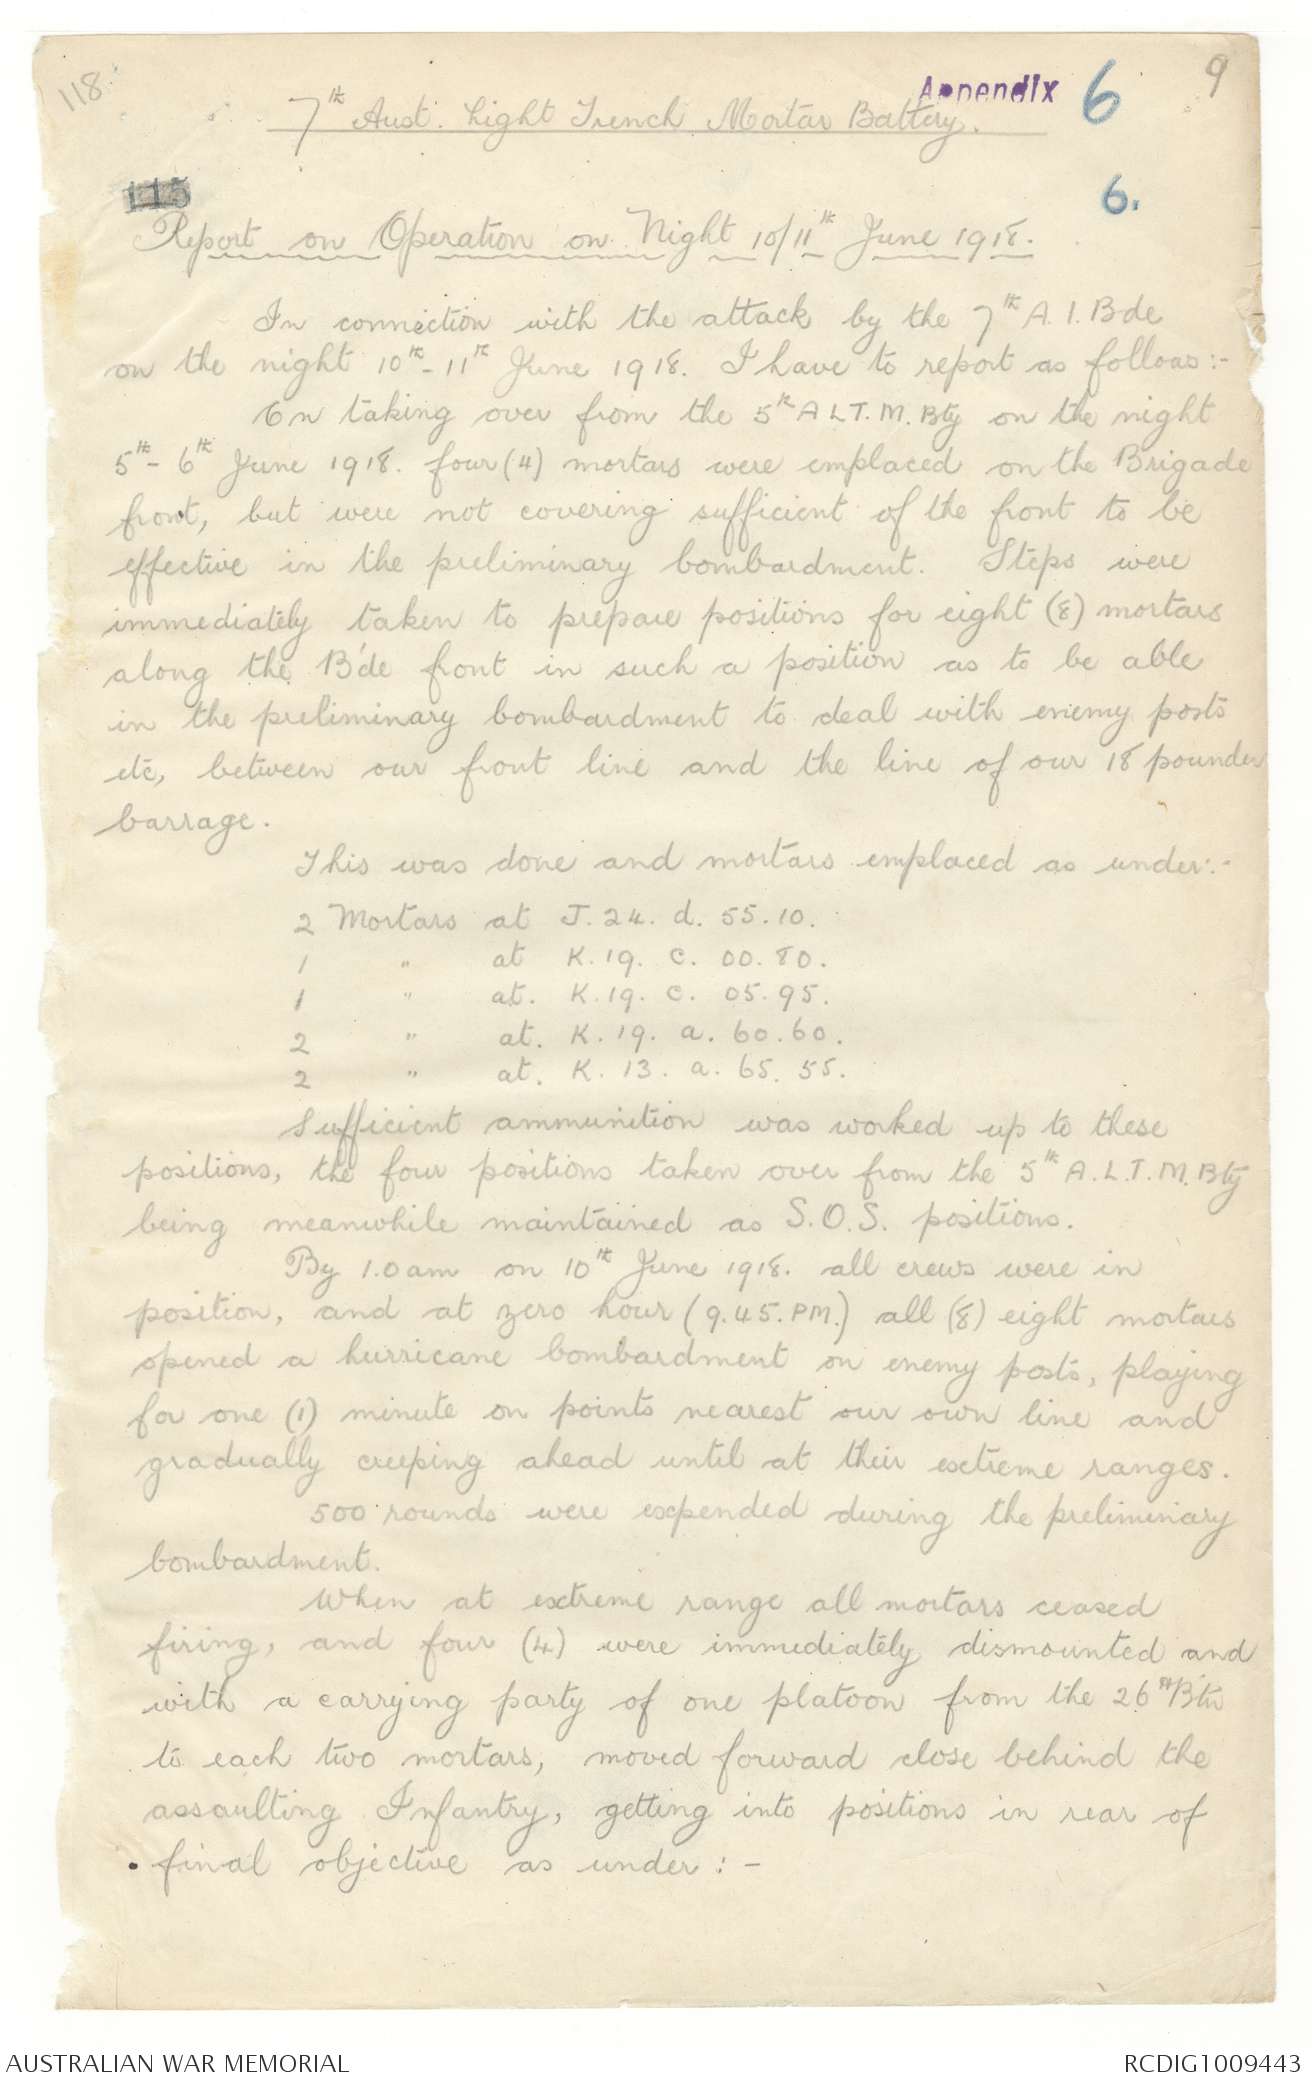 118
Appendix 6
9
7th Aust. Light Trench Mortar Battery.
115
6.
Report on Operation on Night 10/11th June 1918.
In connection with the attack by the 7th A.I.Bde
on the night 10th-11th June 1918. I have to report as folloas:-
On taking over from the 5th A LT.M.Bty on the night
5th-6th June 1918. four (4) mortars were emplaced on the Brigade
front, but were not covering sufficient of the front to be
effective in the preliminary bombardment. Steps were
immediately taken to prepare positions for eight (8) mortars
along the B'de front in such a position as to be able
in the preliminary bombardment to deal with enemy posts
etc, between our front line and the line of our 18 pounder
barrage.
This was done and mortars emplaced as under:-
2 Mortars at J.24.d.55.10.
1 " at K.19.c.00.80.
1 " at. K.19.c.05.95.
2 " at. K.19.a.60.60.
2 " at. K.13.a.65.55.
Sufficient ammunition was worked up to these
positions, the four positions taken over from the 5th A.L.T.M.Bty
being meanwhile maintained as S.O.S. positions.
By 1.0am on 10th June 1918. all crews were in
position, and at zero hour (9.45.PM.) all (8) eight mortars
opened a hurricane bombardment on enemy posts, playing
for one (1) minute on points nearest our own line and
gradually creeping ahead until at their extreme ranges.
500 rounds were expended during the preliminary
bombardment.
When at extreme range all mortars ceased
firing, and four (4) were immediately dismounted and
with a carrying party of one platoon from the 26th B'tn
to each two mortars, moved forward close behind the
assaulting Infantry, getting into positions in rear of
final objective as under:-
AUSTRALIAN WAR MEMORIAL
RCDIG1009443